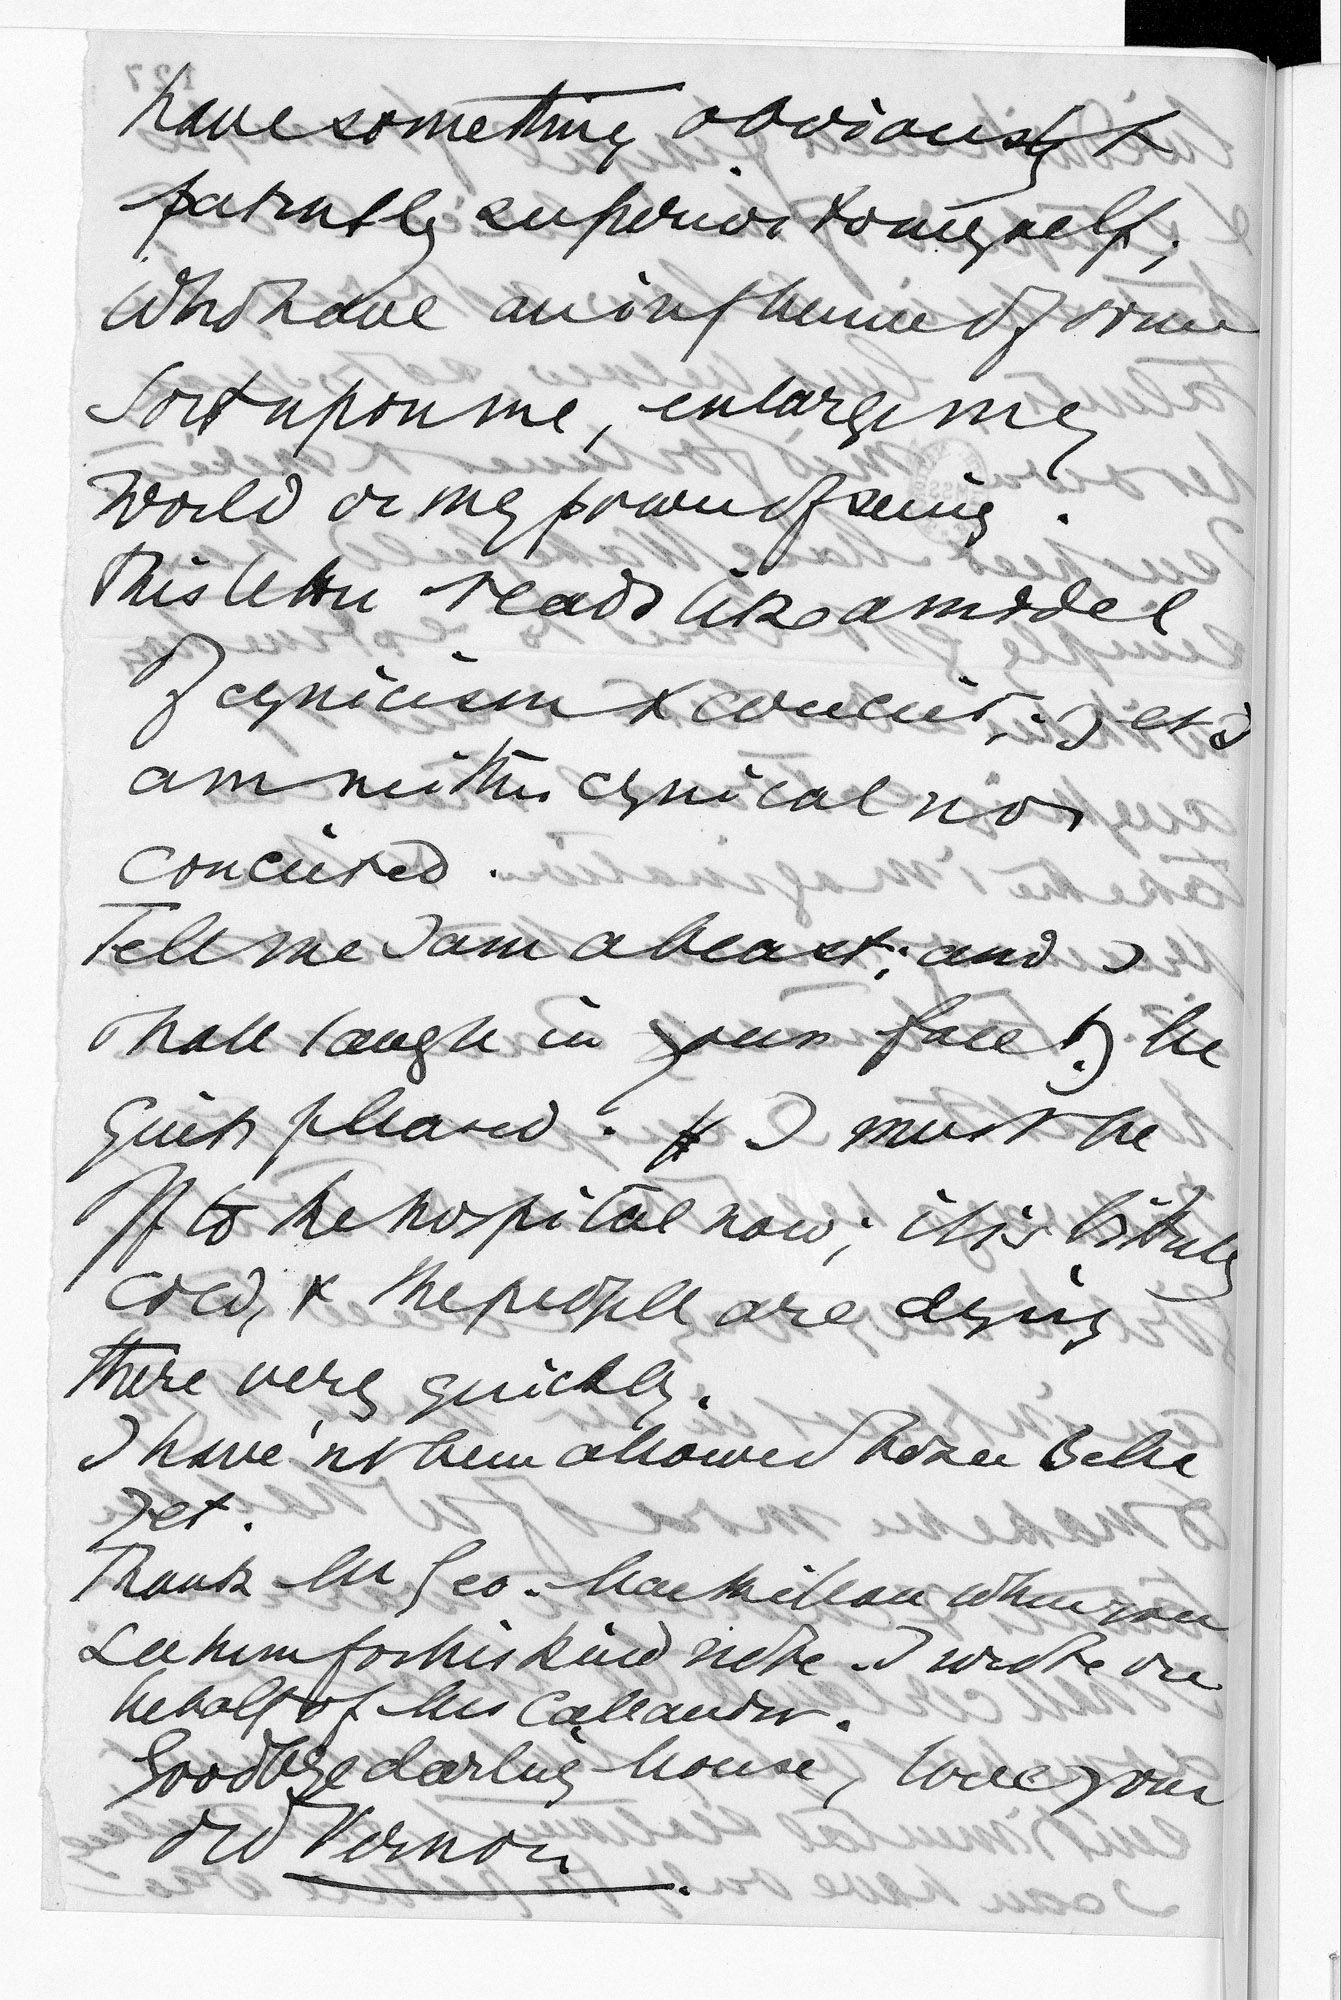 have something obviously &
patently superior to myself;
who have an influence of some
sort upon me, enlarge my
world or my power of seeing.
This letter reads like a model
of cynicism & conceit; yet I
am neither cynical nor
conceited.
Tell me I am a beast; and I
shall laugh in your face & be
quite pleased. I must be
off to the hospital now; it is bitterly
cold, & the people are dying
there very quickly.
I have'nt been allowed to see Belle
yet.
Thank Mr Geo. Macmillan when you
see him for his kind note. I wrote on
behalf of Miss Callander.
Goodbye darling Mouse, love your
old Vernon.
127